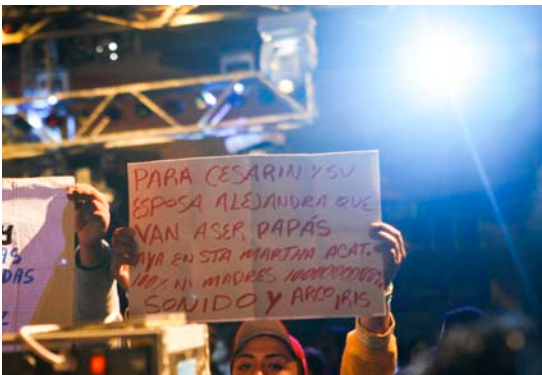 PARA CESARIN Y SU
ESPOSA ALEJANDRA QUE
VAN ASER PAPÁS
AYA EN STA MARTHA ACAT.
100% NI MADRES 1000000000%
SONIDO Y ARCO IRIS
Y
AS
DAS
Z